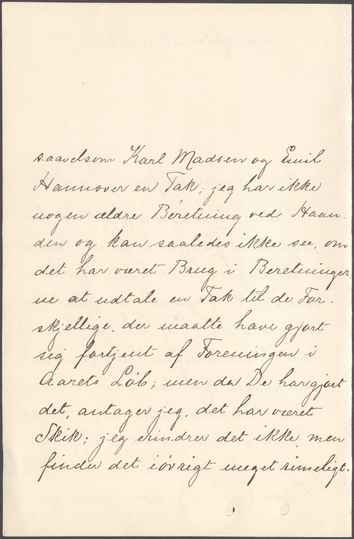 saavelsom Karl Madsen og Emil
Hannover en Tak; jeg har ikke
nogen ældre Beretning ved Haan
den og kan saaledes ikke see, om
det har været Brug i Beretninger
ne at udtale en Tak til de For
skjellige, der maatte have gjort
sig fortjent af Foreningen i
Aarets Løb; men da De har gjort
det, antager jeg, det har været
Skik; jeg erindrer det ikke, men
finder det iøvrigt meget rimeligt.